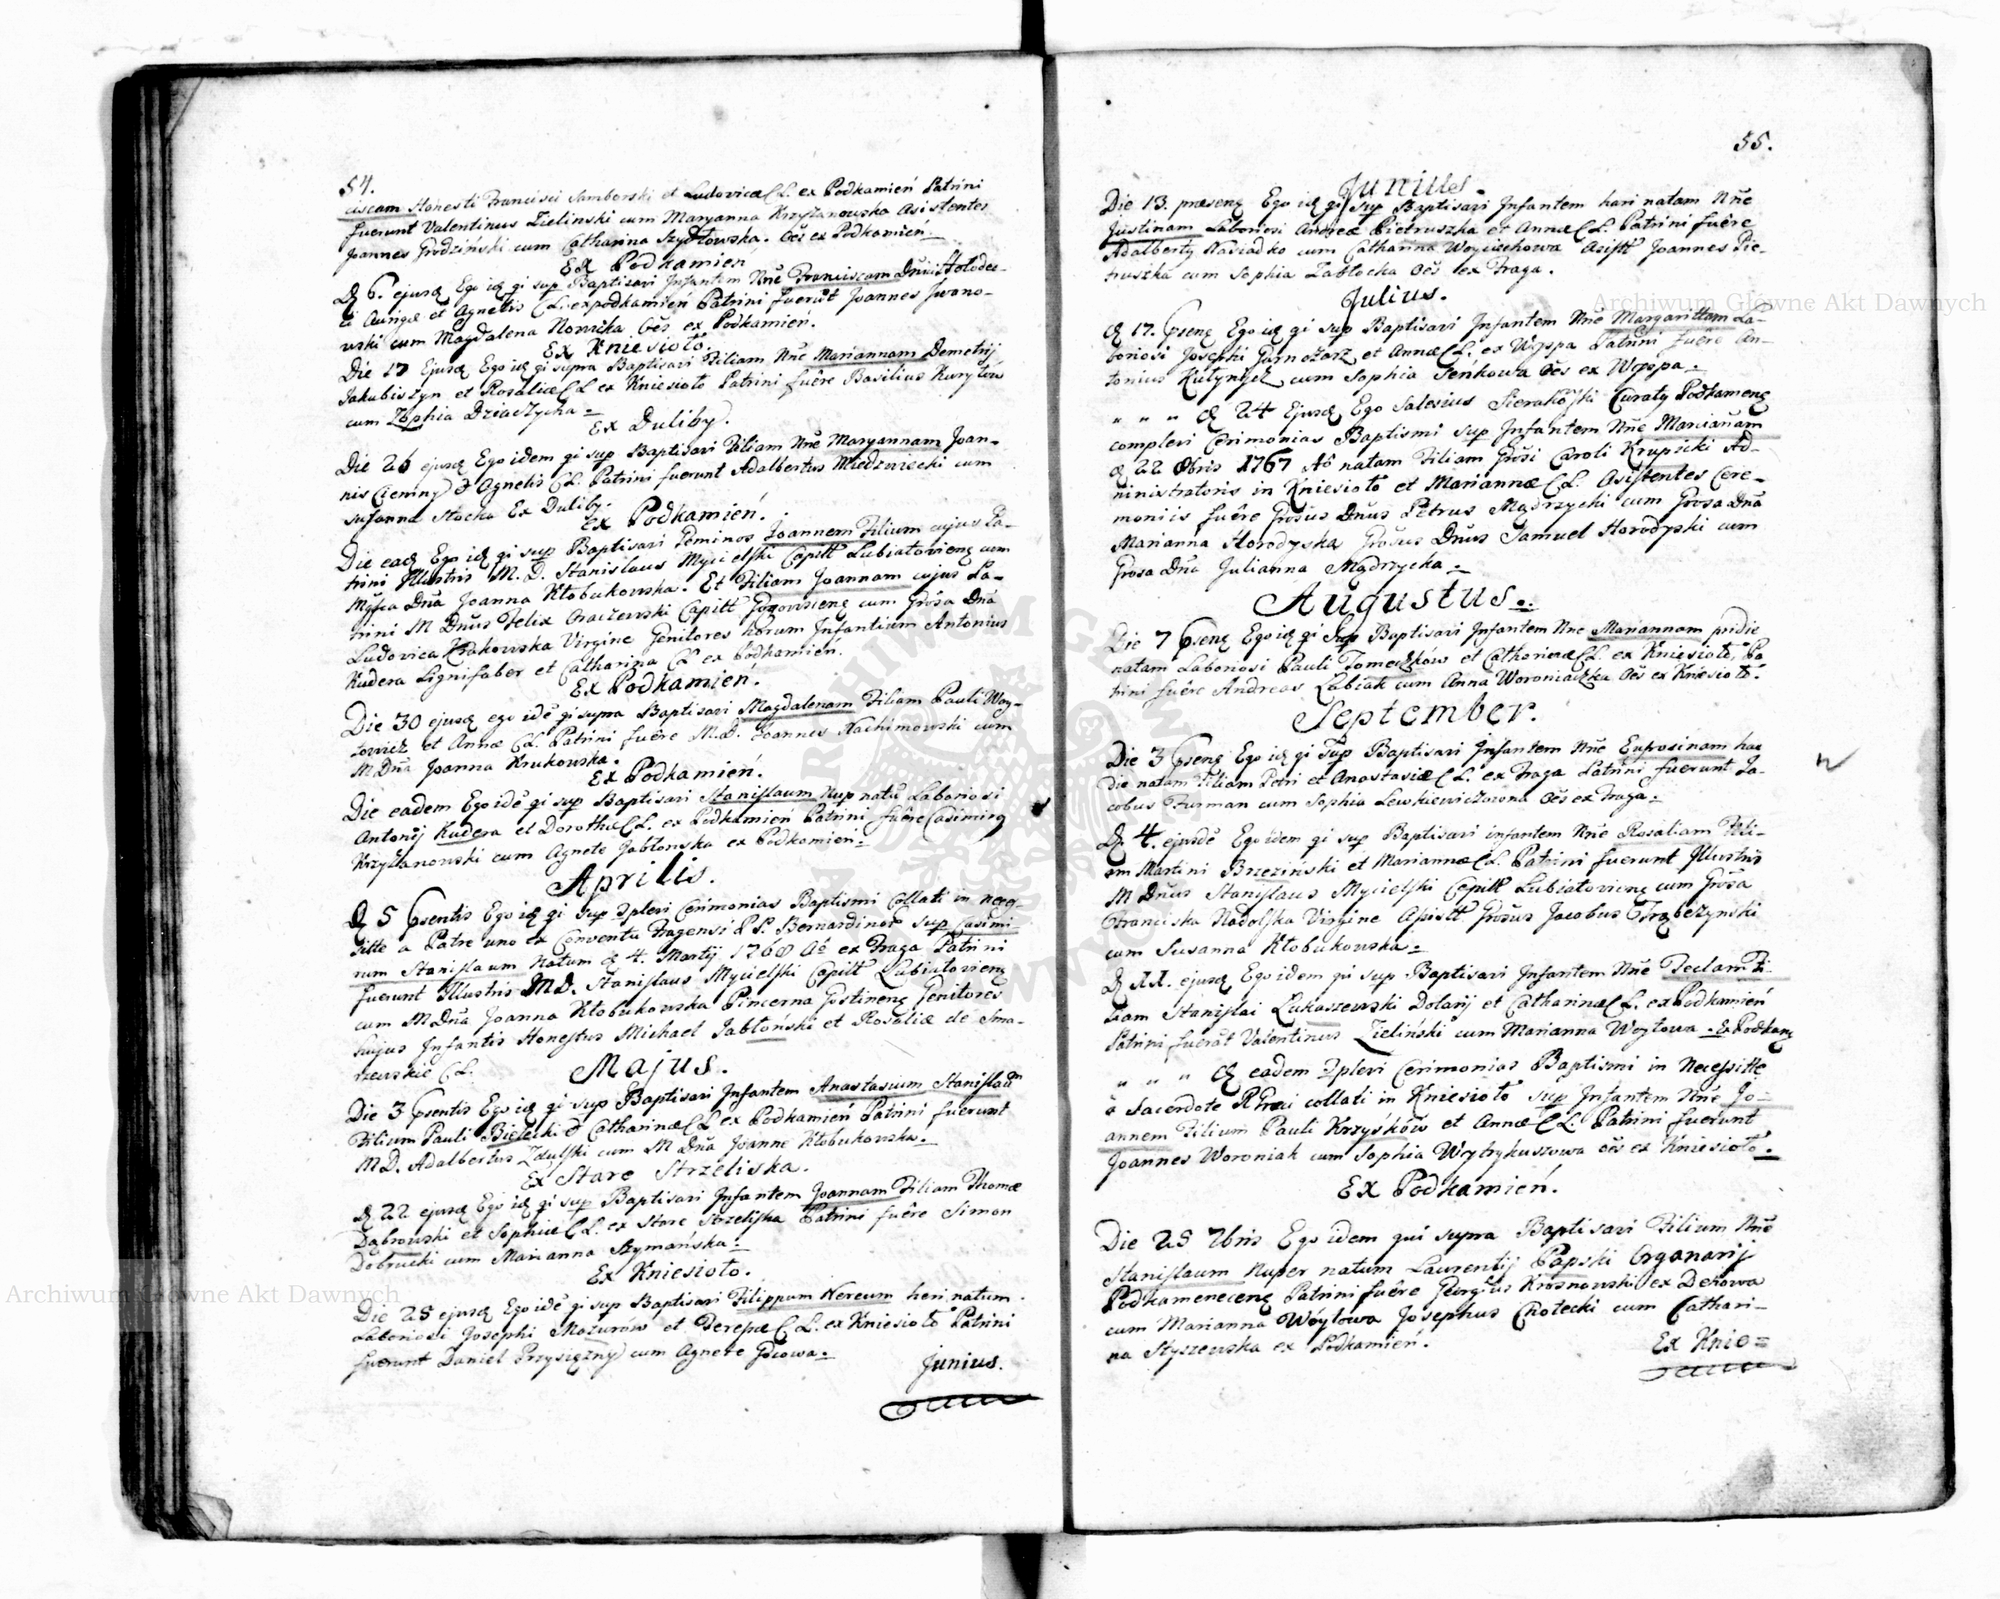 54.
ciscam Honesti Francisci Samborski et Ludovicæ C.L. ex Podkamień Patrini
fuerunt Valentinus Zielinski cum Maryanna Krzyżanowska Asistentes
Joannes Grodziński cum Catharina Szydłowska. Oēs ex Podkamien.
Ex Podkamien
D 6. ejusq Ego idq qi sup Baptisavi Infantem Nñe Franciscam Hołode-
ci Aurigæ et Agnetis C.L. ex podkamień Patrini fuerūt Joannes Jwano-
wski cum Magdalena Nowicka Oēs ex Podkamień.
Ex Kniesioło.
Die 17 Ejusq Ego idq qi supra Baptisavi Filiam Nñe Mariannam Demetrij
Jakubiszyn et Rosaliæ C.L. ex Kniesioło Patrini fuêre Basilius Kurytow
cum Zophia Dziadzycha.
Ex Duliby.
Die 26 ejusq Ego idem qi sup Baptisavi Filiam Nñe Maryannam Joan-
nis Ciemny & Agnetis C.L. Patrini fuerunt Adalbertus Miedzwiecki cum
Susanna Stocka Ex Duliby.
Ex Podkamień.
Die eadq Ego idq qi sup Baptisavi Geminos Joannem Filium cujus Pa-
trini Illustris M.D. Stanislaus Mycielski Capitt Lubiatovienq cum
Mgfca Dña Joanna Kłobukowska. Et Filiam Joannam cujus Pa-
trini M Dñus Felix Oraczewski Capitt cum Grôsa Dña
Ludovica Krakowska Virgine Genitores horum Infantium Antonius
Kudera Lignifaber et Catharina C.L. ex Podkamien.
Ex Podkamień.
Die 30 ejusq ego idē qi supra Baptisavi Magdalenam Filiam Pauli Woy-
towicz et Annæ C.L. Patrini fuêre M.D. Joannes Nachimowski cum
M Dña Joanna Krukowska.
Ex Podkamień.
Die eadem Ego idē qi sup Baptisavi Stanislaum nup natū Laboriosi
Antonij Kudera et Dorothæ C.L. ex Podkamień Patrini fuêre Casimirq
Krzyżanowski cum Agnete Jabłonska ex Podkamien.
Aprilis.
D 5 Psentis Ego idq qi sup 2pleri Cerimonias Baptismi Collati in neces-
sitte a Patre uno ex Conventu Fragensi P.P. Bernardinor sup Casimi-
rum Stanislaum Natum q 4. Martij 1768 Aô ex Fraga Patrini
fuerunt Illustris M.D. Stanislaus Mycielski Capitt Lubiatovienq
cum M Dña Joanna Kłobukowska Pincerna Gostinenq Genitores
hujus Infantis Honestus Michael Jabłoński et Rosaliæ de Sma-
rzewskie C.L.
Majus.
Die 3 Psentis Ego idq qi sup Baptisavi Infantem Anastasium Stanislaū
Filium Pauli Bielecki & Catharinæ C.L. ex Podkamień Patrini fuerunt
M.D. Adalbertus Zdulski cum M Dña Joanne Kłobukowska.
Ex Stare Strzeliska.
D 22 ejusq Ego idq qi sup Baptisavi Infantem Joannam Filiam Thomæ
Dąbrowski et Sophiæ C.L. ex Stare Strzeliska Patrini fuêre Simon
Dobrucki cum Marianna Szymańska.
Ex Kniesioło.
Die 25 ejusq Ego idē qi sup Baptisavi Filippum Nereum heri natum
Laboriosi Josephi Mazurów et Teresæ C.L. ex Kniesioło Patrini
fuerunt Daniel Przysiężny cum Agnete
Junius.
55.
Junius.
Die 13. præsenq Ego idq qi sup Baptisavi Infantem heri natam Nñe
Justinam Laboriosi Andreæ Pietruszka et Annæ C.L. Patrini fuêre
Adalbertq Nasiadko cum Catharina Woyciechowa Asistt Joannes Pie-
truszka cum Sophia Zabłocka Oēs ex Fraga.
Julius.
D 17. Psenq Ego idq qi sup Baptisavi Infantem Nñe Margarittam La-
boriosi Josephi Garnczarz et Annæ C.L. ex Wyspa Patrini fuêre An-
tonius cum Sophia Senkowa Oēs ex Wyspa.
" " " D 24 Ejusq Ego Salesius Curatq Podkamenq
complevi Cerimonias Baptismi sup Infantem Nñe Mariañam
q 22 8bris 1767 Aô natam Filiam Grôsi Caroli Krupicki Ad-
ministratoris in Kniesioło et Mariannæ C.L. Asistentes Cere-
moniis fuêre Grôsus Dñus Petrus Mądrzycki cum Grosa Dña
Marianna Horodyska Grôsus Dñus Samuel Horodyski cum
Grosa Dña Julianna Mądrzycka.
Augustus.
Die 7 Psenq Ego idq qi sup Baptisavi Infantem Nñe Mariannam pridie
natam Laboriosi Pauli Tomedzków et Catharinæ C.L. ex Kniesioło, Pa
trini fuêre Andreas Labiak cum Anna Woroniaczka Oēs ex Kniesioło.
September.
Die 3 Psenq Ego idq qi sup Baptisavi Infantem Nñe Euprosinam hac
Die natam Filiam Petri et Anastasiæ C.L. ex Fraga Patrini fuerunt Ja-
cobus Furman cum Sophia Lewkiewiczowna Oēs ex Fraga.
D 4. ejusdē Ego idem qi sup Baptisavi infantem Nñe Rosaliam Fili-
am Martini Brzeziński et Mariannæ C.L. Patrini fuerunt Illustris
M Dñus Stanislaus Mycielski Capitt Lubiatovienq cum Grôsa
Franciska Nadolska Virgine Asistt Grôsus Jacobus Trąbczynski
cum Susanna Kłobukowska.
D 11. ejusq Ego idem qi sup Baptisavi Infantem Nñe Teclam Fi-
liam Stanislai Łukaszewski Dolarij et Catharinæ C.L. ex Podkamień
Patrini fuerūt Valentinus Zieliński cum Marianna Woytowa. Ex Podkamq
" " " D eadem 2pleri Cerimonias Baptismi in Necessitte
a Sacerdote collati in Kniesioło sup Infantem Nñe Jo-
annem Filium Pauli Krzysków et Annæ C.L. Patrini fuerunt
Joannes Woroniak cum Sophia Wytrykuszowa oēs ex Kniesioło.
Ex Podkamień.
Die 25 7bris Ego idem qui supra Baptisavi Filium Nñe
Stanislaum Nuper natum Laurentij Papski Organarij
Podkamenecenq Patrini fuêre Georgius Krosnowski ex Derowa
cum Marianna Wóytowa Josephus Chołecki cum Cathari-
na Styszewska ex Podkamień.
Ex Knie=
Archiwum Główne Akt Dawnych
Archiwum Główne Akt Dawnych